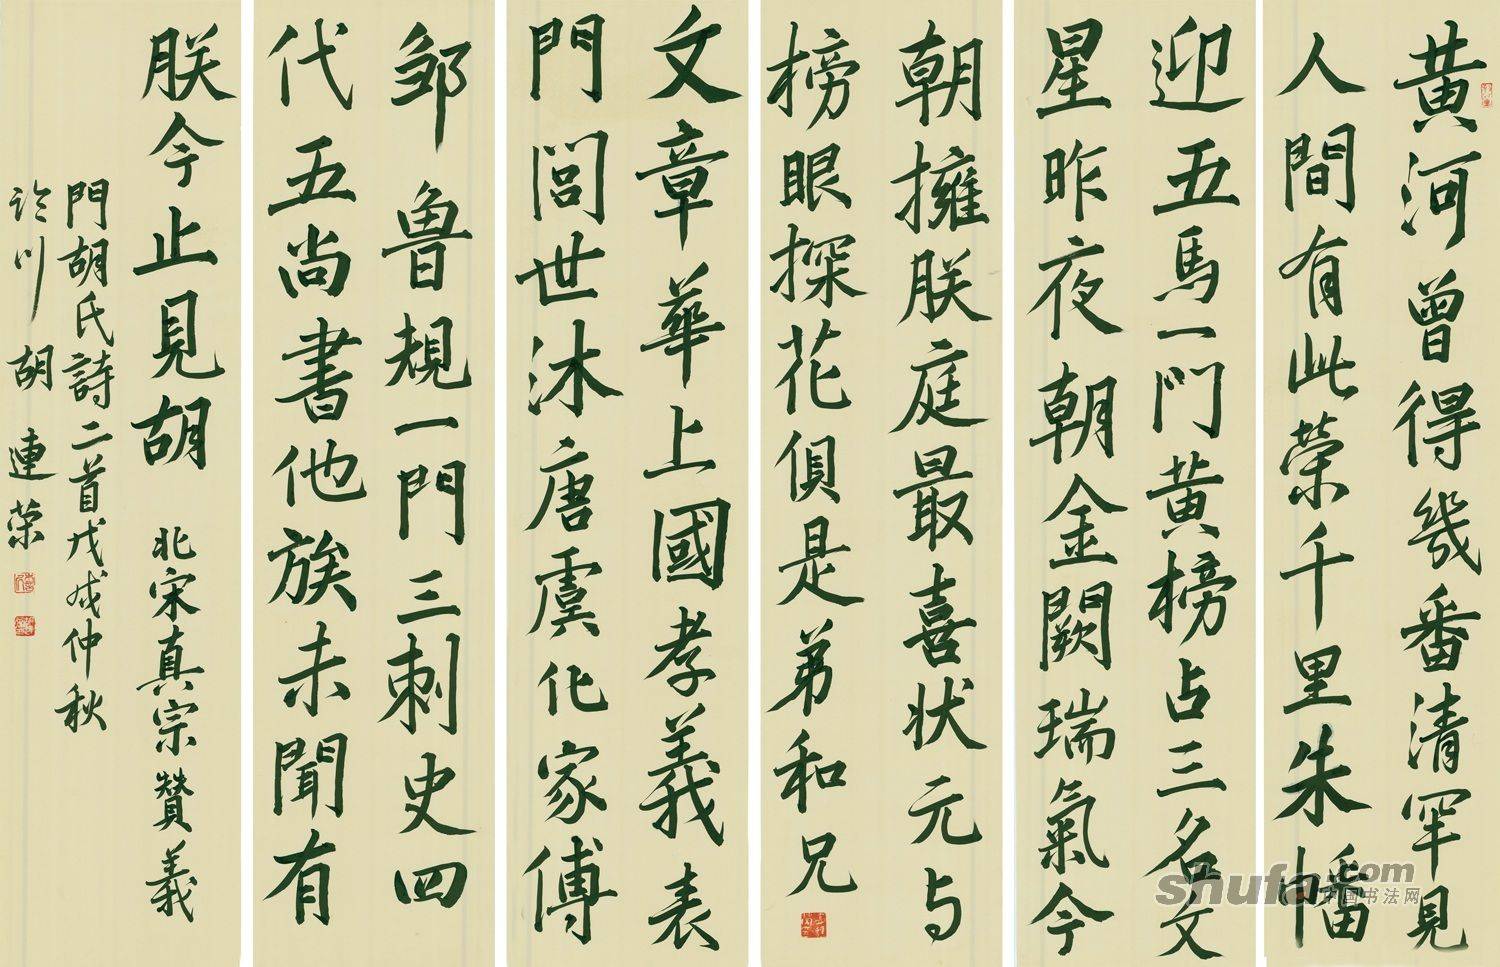 黃河曾得幾番清罕見
人間有此榮千里朱幡
迎五馬一門黃榜占三名文
星昨夜朝金闕瑞氣今
朝擁朕庭最喜狀元与
榜眼探花俱是弟和兄
文章華上國孝義表
門閭世沐唐虞化家傅
邹魯規一門三刺史四
代五尚書他族未聞有
朕今止見胡
北宋真宗贊義
門胡氏詩二首戊戌仲秋
胡連荣
shufa.com
中国书法网